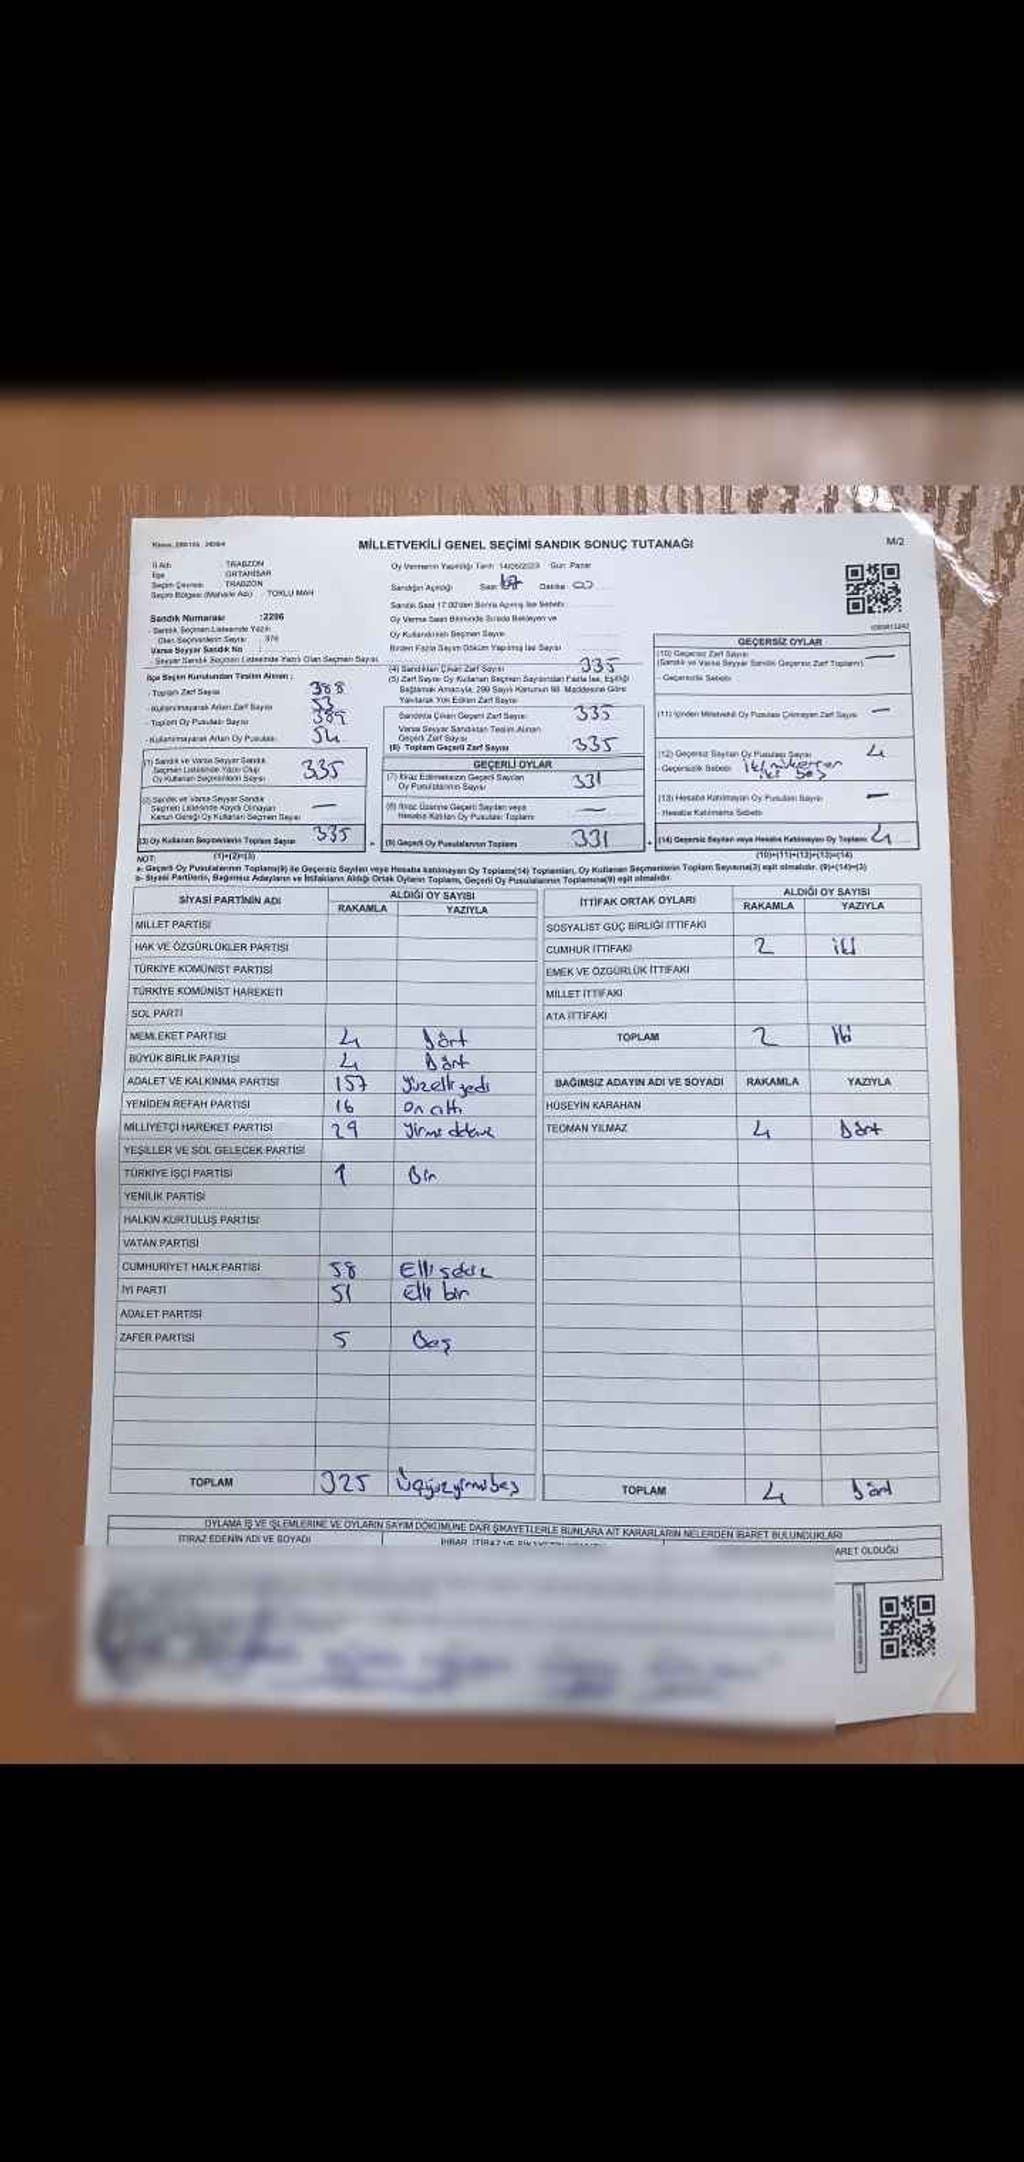 MİLLETVEKİLİ GENEL SEÇİMİ SANDIK SONUÇ TUTANAĞI
M/2
İl Adı TRABZON
İlçe ORTAHİSAR
Seçim Çevresi TRABZON
Seçim Bölgesi (Mahalle Adı) TOKLU MAH
Sandık Numarası :2296
- Sandık Seçmen Listesinde Yazılı
Olan Seçmenlerin Sayısı : 376
Varsa Seyyar Sandık No
Seyyar Sandık Seçmen Listesinde Yazılı Olan Seçmen Sayısı
İlçe Seçim Kurulundan Teslim Alınan ;
- Toplam Zarf Sayısı 388
- Kullanılmayarak Artan Zarf Sayısı 53
- Toplam Oy Pusulası Sayısı 389
- Kullanılmayarak Artan Oy Pusulası 54
(1) Sandık ve Varsa Seyyar Sandık
Seçmen Listesinde Yazılı Olup
Oy Kullanan Seçmenlerin Sayısı 335
(2) Sandık ve Varsa Seyyar Sandık
Seçmen Listesinde Kayıtlı Olmayan
Kanun Gereği Oy Kullanan Seçmen Sayısı —
(3) Oy Kullanan Seçmenlerin Toplam Sayısı 335
(1)+(2)=(3)
Oy Vermenin Yapıldığı Tarih 14/05/2023 Gün Pazar
Sandığın Açıldığı Saat 17 Dakika 00
Sandık Saat 17:00'den Sonra Açılmış İse Sebebi
Oy Verme Saati Bitiminde Sırada Bekleyen ve
Oy Kullandırılan Seçmen Sayısı
Birden Fazla Sayım Döküm Yapılmış İse Sayısı
(4) Sandıktan Çıkan Zarf Sayısı 335
(5) Zarf Sayısı Oy Kullanan Seçmen Sayısından Fazla İse, Eşitliği
Sağlamak Amacıyla, 298 Sayılı Kanunun 98. Maddesine Göre
Yakılarak Yok Edilen Zarf Sayısı
Sandıkta Çıkan Geçerli Zarf Sayısı 335
Varsa Seyyar Sandıktan Teslim Alınan
Geçerli Zarf Sayısı
(6) Toplam Geçerli Zarf Sayısı 335
GEÇERLİ OYLAR
(7) İtiraz Edilmeksizin Geçerli Sayılan
Oy Pusulalarının Sayısı 331
(8) İtiraz Üzerine Geçerli Sayılan veya
Hesaba Katılan Oy Pusulaları Toplamı —
(9) Geçerli Oy Pusulalarının Toplamı 331
GEÇERSİZ OYLAR
(10) Geçersiz Zarf Sayısı —
(Sandık ve Varsa Seyyar Sandık Geçersiz Zarf Toplamı)
- Geçersizlik Sebebi
(11) İçinden Milletvekili Oy Pusulası Çıkmayan Zarf Sayısı —
(12) Geçersiz Sayılan Oy Pusulası Sayısı 4
- Geçersizlik Sebebi iki mükerrer
iki boş
(13) Hesaba Katılmayan Oy Pusulası Sayısı —
- Hesaba Katılmama Sebebi
(14) Geçersiz Sayılan veya Hesaba Katılmayan Oy Toplamı 4
(10)+(11)+(12)+(13)=(14)
NOT:
a- Geçerli Oy Pusulalarının Toplamı(9) ile Geçersiz Sayılan veya Hesaba Katılmayan Oy Toplamı(14) Toplamları, Oy Kullanan Seçmenlerin Toplam Sayısına(3) eşit olmalıdır. (9)+(14)=(3)
b- Siyasi Partilerin, Bağımsız Adayların ve İttifakların Aldığı Ortak Oyların Toplamı, Geçerli Oy Pusulalarının Toplamına(9) eşit olmalıdır.
SİYASİ PARTİNİN ADI ALDIĞI OY SAYISI
RAKAMLA YAZIYLA
MİLLET PARTİSİ
HAK VE ÖZGÜRLÜKLER PARTİSİ
TÜRKİYE KOMÜNİST PARTİSİ
TÜRKİYE KOMÜNİST HAREKETİ
SOL PARTİ
MEMLEKET PARTİSİ 4 Dört
BÜYÜK BİRLİK PARTİSİ 4 Dört
ADALET VE KALKINMA PARTİSİ 157 Yüzelli yedi
YENİDEN REFAH PARTİSİ 16 On altı
MİLLİYETÇİ HAREKET PARTİSİ 29
YEŞİLLER VE SOL GELECEK PARTİSİ
TÜRKİYE İŞÇİ PARTİSİ 1 Bir
YENİLİK PARTİSİ
HALKIN KURTULUŞ PARTİSİ
VATAN PARTİSİ
CUMHURİYET HALK PARTİSİ 58 Elli sekiz
İYİ PARTİ 51 Elli bir
ADALET PARTİSİ
ZAFER PARTİSİ 5 Beş
TOPLAM 325 Üçyüzyirmibeş
İTTİFAK ORTAK OYLARI ALDIĞI OY SAYISI
RAKAMLA YAZIYLA
SOSYALİST GÜÇ BİRLİĞİ İTTİFAKI
CUMHUR İTTİFAKI 2 iki
EMEK VE ÖZGÜRLÜK İTTİFAKI
MİLLET İTTİFAKI
ATA İTTİFAKI
TOPLAM 2 iki
BAĞIMSIZ ADAYIN ADI VE SOYADI RAKAMLA YAZIYLA
HÜSEYİN KARAHAN
TEOMAN YILMAZ 4 Dört
TOPLAM 4 Dört
OYLAMA İŞ VE İŞLEMLERİNE VE OYLARIN SAYIM DÖKÜMÜNE DAİR ŞİKAYETLERLE BUNLARA AİT KARARLARIN NELERDEN İBARET BULUNDUKLARI
İTİRAZ EDENİN ADI VE SOYADI
ARET OLDUĞU